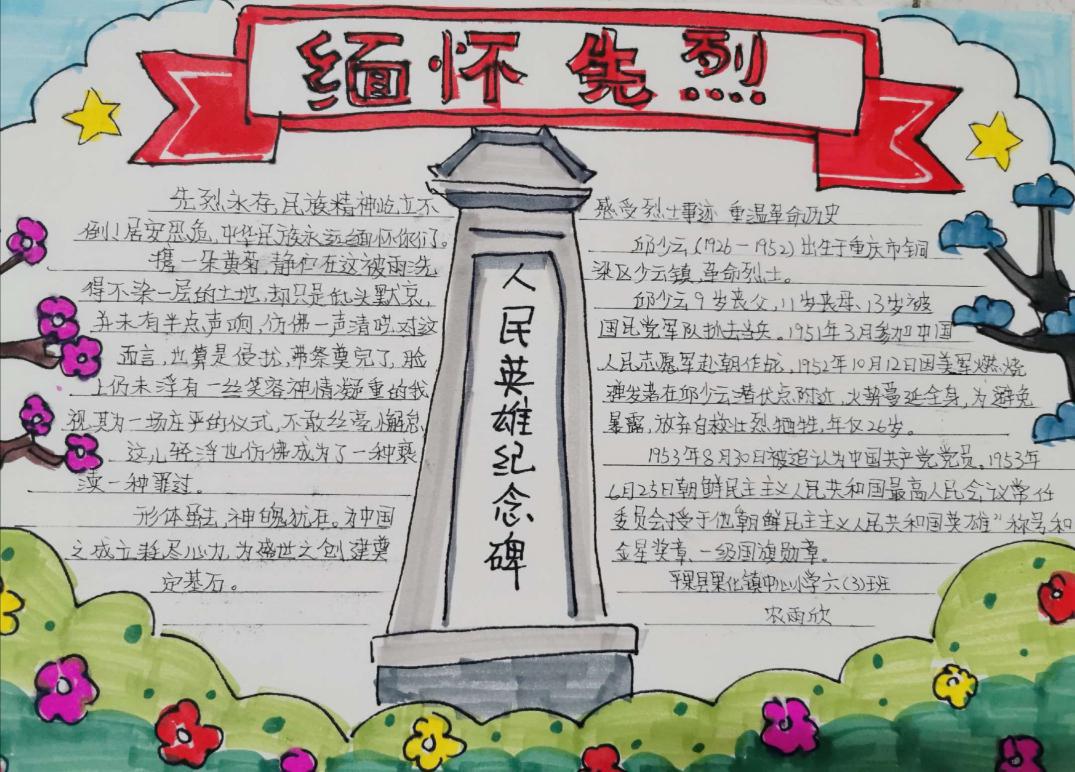 缅怀先烈
先烈永存,民族精神屹立不
倒!居安思危,中华民族永远缅怀你们。
携一朵黄菊,静伫在这被雨洗
得不染一层的土地,却只是低头默哀,
并未有半点声响,仿佛一声清咳,对这
而言,也算是侵扰,带祭奠完了,脸
上仍未浮有一丝笑容神情凝重的我
视其为一场庄严的仪式,不敢丝毫懈怠,
这儿轻浮也仿佛成为了一种亵
渎一种罪过。
形体虽去,神魄犹在。为中国
之成立耗尽心力,为盛世之创建奠
定基石。
人民英雄纪念碑
感受烈士事迹 重温革命历史
邱少云(1926-1952)出生于重庆市铜
梁区少云镇,革命烈士。
邱少云9岁丧父,11岁丧母,13岁被
国民党军队抓去当兵。1951年3月参加中国
人民志愿军赴朝作战,1952年10月12日因美军燃烧
弹发落在邱少云潜伏点附近,火势蔓延全身,为避免
暴露,放弃自救壮烈牺牲,年仅26岁。
1953年8月30日被追认为中国共产党党员。1953年
6月25日朝鲜民主主义人民共和国最高人民会议常任
委员会授于他"朝鲜民主主义人民共和国英雄"称号和
金星奖章、一级国旗勋章。
平果县果化镇中心小学六(3)班
农雨欣